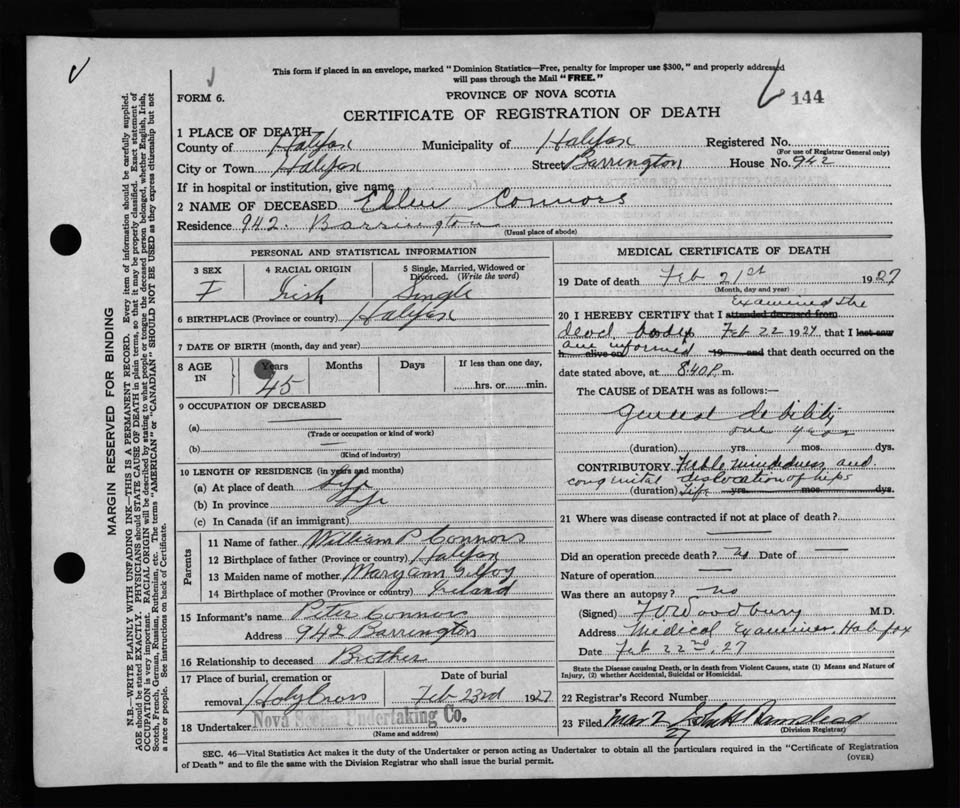 This form if placed in an envelope, marked "Dominion Statistics—Free, penalty for improper use $300," and properly addressed
will pass through the Mail "FREE."
FORM 6.
PROVINCE OF NOVA SCOTIA
144
CERTIFICATE OF REGISTRATION OF DEATH
1 PLACE OF DEATH—
County of Halifax Municipality of Halifax Registered No.
(For use of Registrar General only)
City or Town Halifax Street Barrington House No. 942
If in hospital or institution, give name
2 NAME OF DECEASED Ellen Connors
Residence 942 Barrington
(Usual place of abode)
PERSONAL AND STATISTICAL INFORMATION
3 SEX 4 RACIAL ORIGIN 5 Single, Married, Widowed or
Divorced. (Write the word)
F Irish Single
6 BIRTHPLACE (Province or country) Halifax
7 DATE OF BIRTH (month, day and year)
8 AGE IN Years Months Days If less than one day,
45 hrs. or min.
9 OCCUPATION OF DECEASED
(a)
(Trade or occupation or kind of work)
(b)
(Kind of industry)
10 LENGTH OF RESIDENCE (in years and months)
(a) At place of death Life
(b) In province Life
(c) In Canada (if an immigrant)
Parents
11 Name of father William P Connors
12 Birthplace of father (Province or country) Halifax
13 Maiden name of mother Maryann
14 Birthplace of mother (Province or country) Ireland
15 Informant's name Peter Connors
Address 942 Barrington
16 Relationship to deceased Brother
17 Place of burial, cremation or Date of burial
removal Holy Cross Feb 23rd 1927
18 Undertaker Nova Scotia Undertaking Co.
(Name and address)
MEDICAL CERTIFICATE OF DEATH
19 Date of death Feb 21st 1927
(Month, day and year)
Examined the
20 I HEREBY CERTIFY that I attended deceased from
dead body Feb 22 1927 that I last saw
am informed
h alive on 19 and that death occurred on the
date stated above, at 8.40 P. m.
The CAUSE of DEATH was as follows:—
General debility
one year
(duration) yrs. mos. dys.
CONTRIBUTORY Feeble mindedness and
congenital dislocation of hips
(duration) Life yrs. mos. dys.
21 Where was disease contracted if not at place of death?
Did an operation precede death? no Date of
Nature of operation
Was there an autopsy? no
(Signed) Woodbury M.D.
Address Medical Examiner, Halifax
Date Feb 22nd, 27
State the Disease causing Death, or in death from Violent Causes, state (1) Means and Nature of
Injury, (2) whether Accidental, Suicidal or Homicidal.
22 Registrar's Record Number
23 Filed Mar 2
27
(Division Registrar)
SEC. 46—Vital Statistics Act makes it the duty of the Undertaker or person acting as Undertaker to obtain all the particulars required in the "Certificate of Registration
of Death" and to file the same with the Division Registrar who shall issue the burial permit.
(OVER)
MARGIN RESERVED FOR BINDING
N.B.—WRITE PLAINLY WITH UNFADING INK—THIS IS A PERMANENT RECORD. Every item of information should be carefully supplied.
AGE should be stated EXACTLY. PHYSICIANS should STATE CAUSE OF DEATH in plain terms, so that it may be properly classified. Exact statement of
OCCUPATION is very important. RACIAL ORIGIN will be described by stating to what people or tongue the deceased person belonged, whether English, Irish,
Scotch, French, German, Russian, Ruthenian, etc. The terms "AMERICAN" or "CANADIAN" SHOULD NOT BE USED as they express citizenship but not
a race or people. See instructions on back of Certificate.